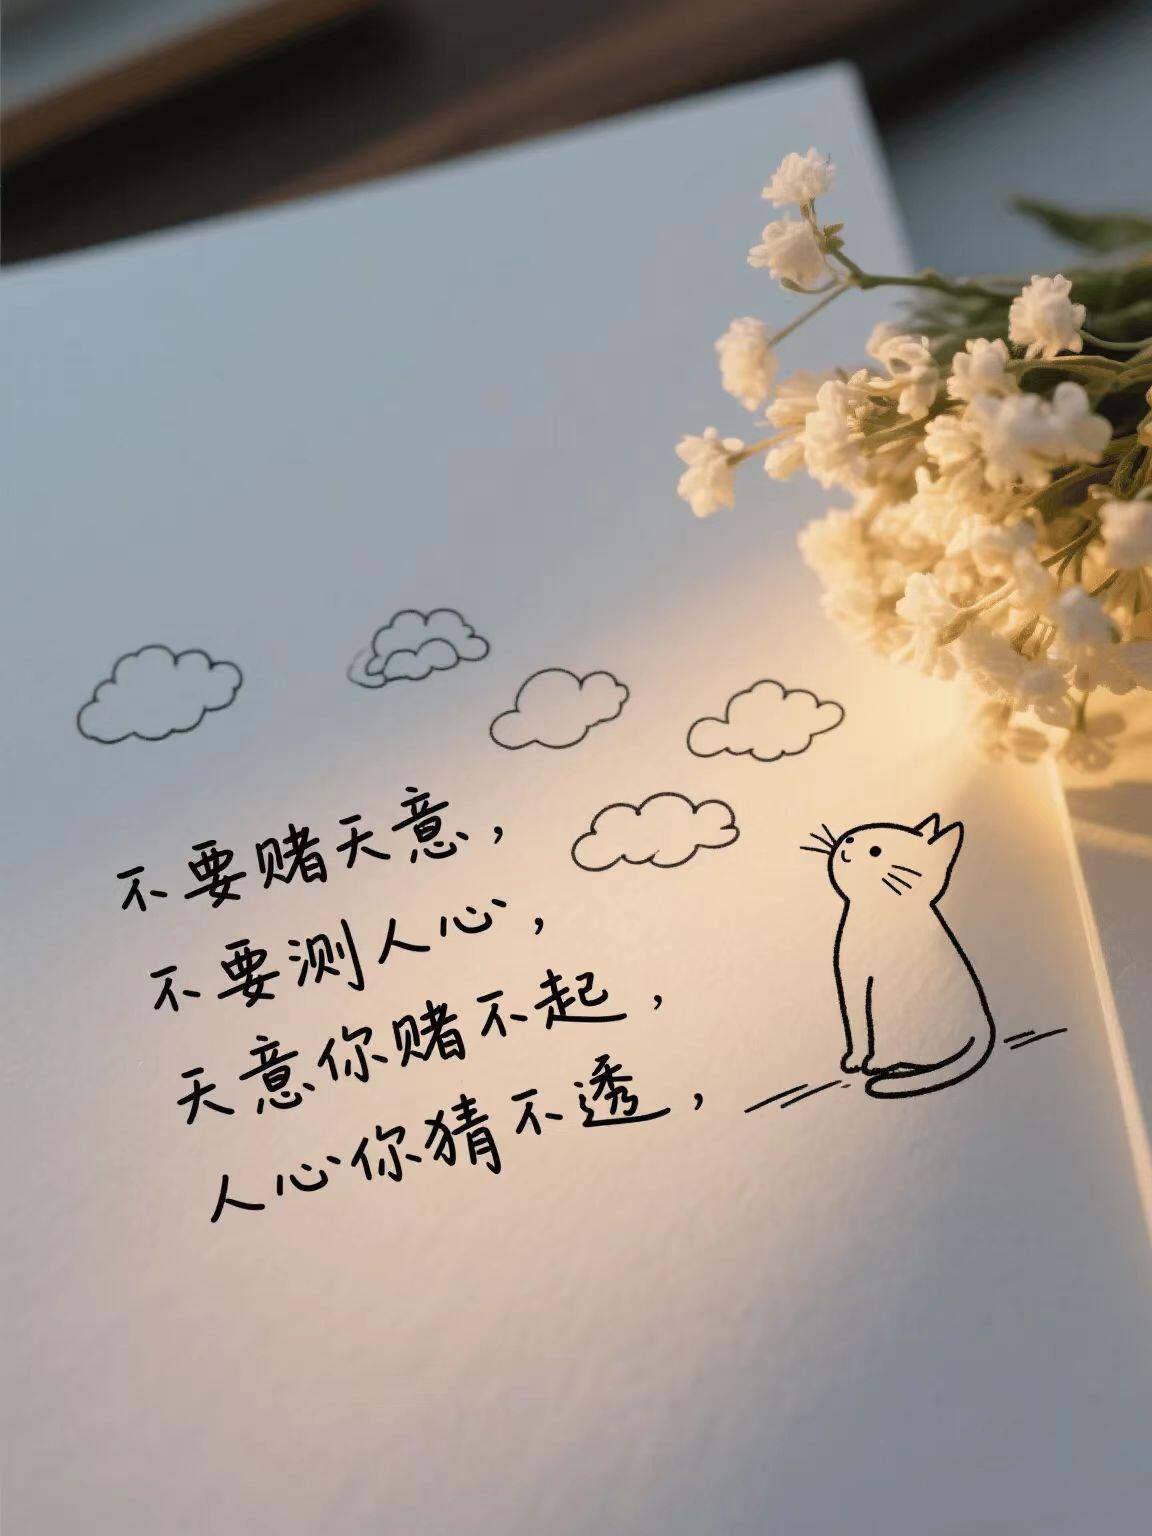 不要赌天意，
不要测人心，
天意你赌不起，
人心你猜不透，